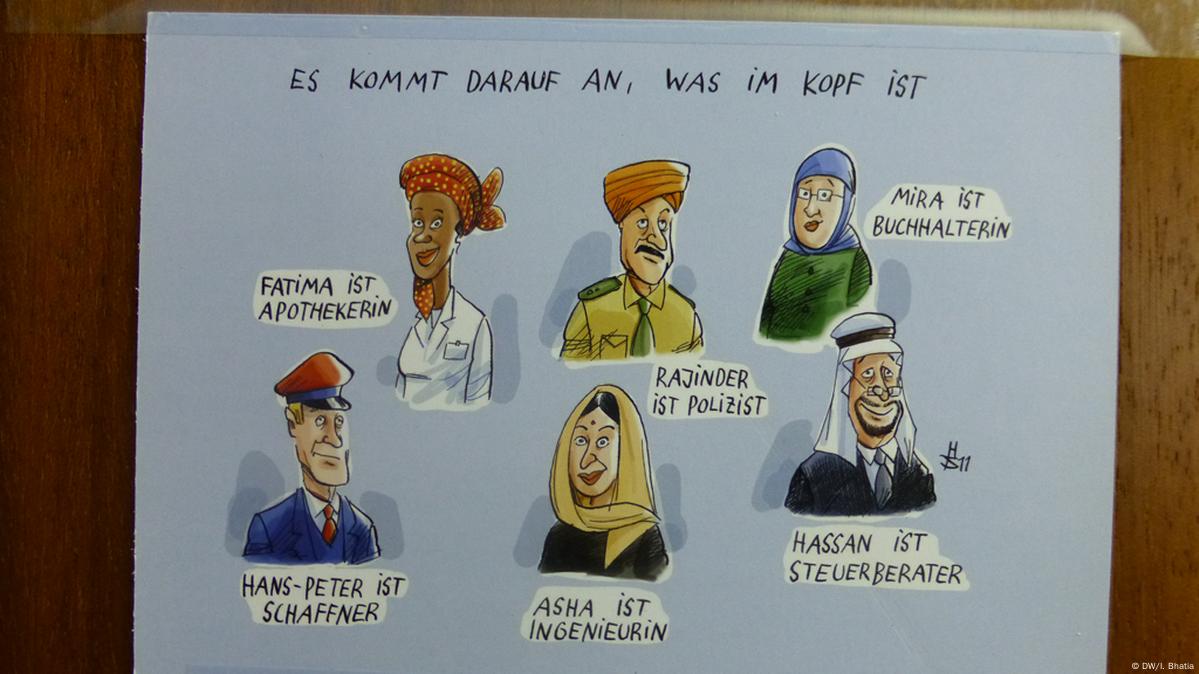 ES KOMMT DARAUF AN, WAS IM KOPF IST
MIRA IST
BUCHHALTERIN
FATIMA IST
APOTHEKERIN
RAJINDER
IST POLIZIST
HANS-PETER IST
SCHAFFNER
ASHA IST
INGENIEURIN
HASSAN IST
STEUERBERATER
© DW/I. Bhatia